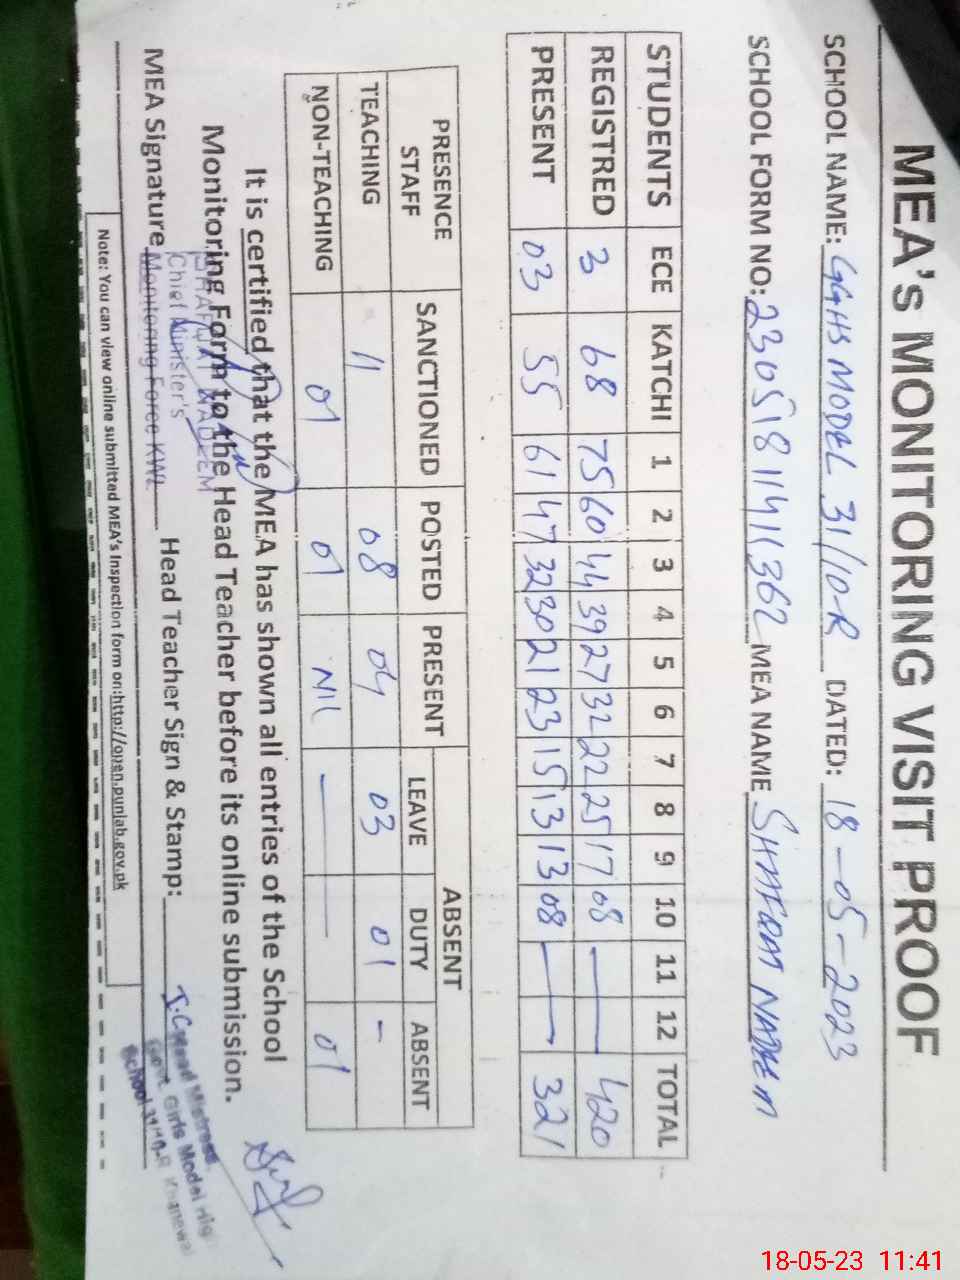 MEA's MONITORING VISIT PROOF
SCHOOL NAME: GGHS MODEL 31/10-R DATED: 18-05-2023
SCHOOL FORM NO: MEA NAME
STUDENTS ECE KATCHI 1 2 3 4 5 6 7 8 9 10 11 12 TOTAL
REGISTRED 3 68 75 60 44 39 27 32 22 25 17 08 — 420
PRESENT 03 55 61 47 32 30 21 23 15 13 13 08 — 321
PRESENCE STAFF SANCTIONED POSTED PRESENT ABSENT
LEAVE DUTY ABSENT
TEACHING 11 08 04 03 01 -
NON-TEACHING 01 01 NIL — — 01
It is certified that the MEA has shown all entries of the School
Monitoring Form to the Head Teacher before its online submission.
MEA Signature Head Teacher Sign & Stamp:
NADEEM
Chief Minister's
Monitoring Force KWL
Head Mistress
Govt. Girls Model Hig
School 31/10-R Khanewal
Note: You can view online submitted MEA's Inspection form on:http://open.punjab.gov.pk
18-05-23 11:41